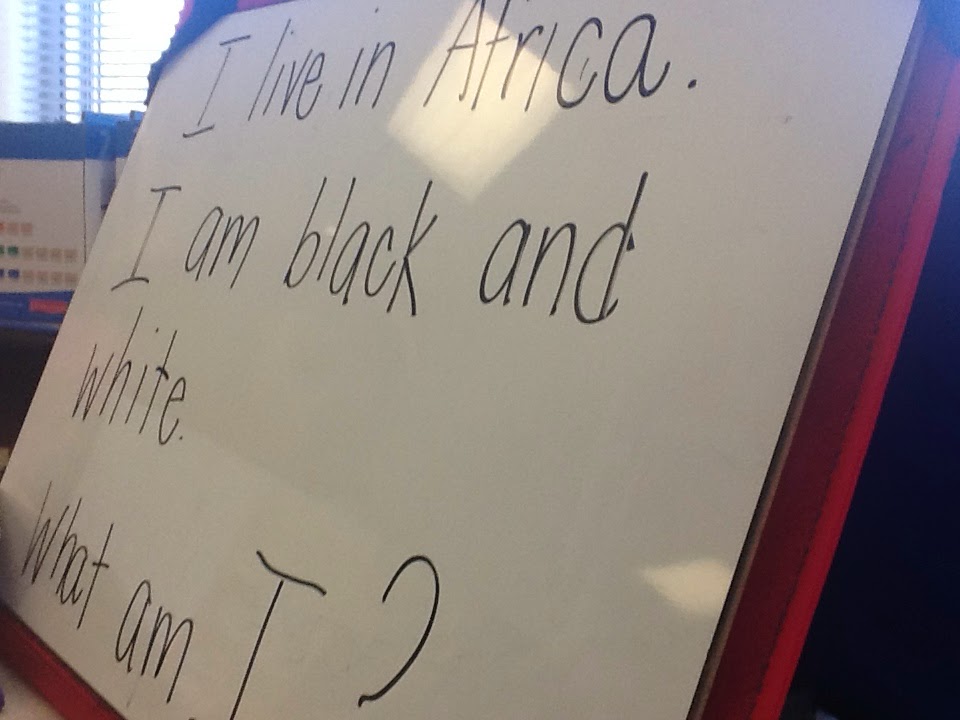 I live in Africa.
I am black and
white.
What am I?